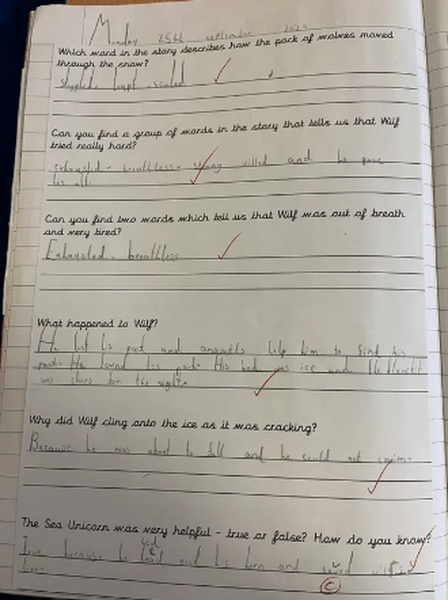 Monday 25th september 2023
Which word in the story describes how the pack of wolves moved
through the snow?
leapt
Can you find a group of words in the story that tells us that Wilf
tried really hard?
exhausted - breathless - strong willed and he gave
his all
Can you find two words which tell us that Wilf was out of breath
and very tired?
Exhausted - breathless
What happened to Wilf?
He lost his pack and animals help him to find his
pack. He loved his pack. His bed was ice and
was stars for the night.
Why did Wilf cling onto the ice as it was cracking?
Because he was about to fall and he could not swim.
The Sea Unicorn was very helpful - true or false? How do you know?
True because he used his horn and saved
C